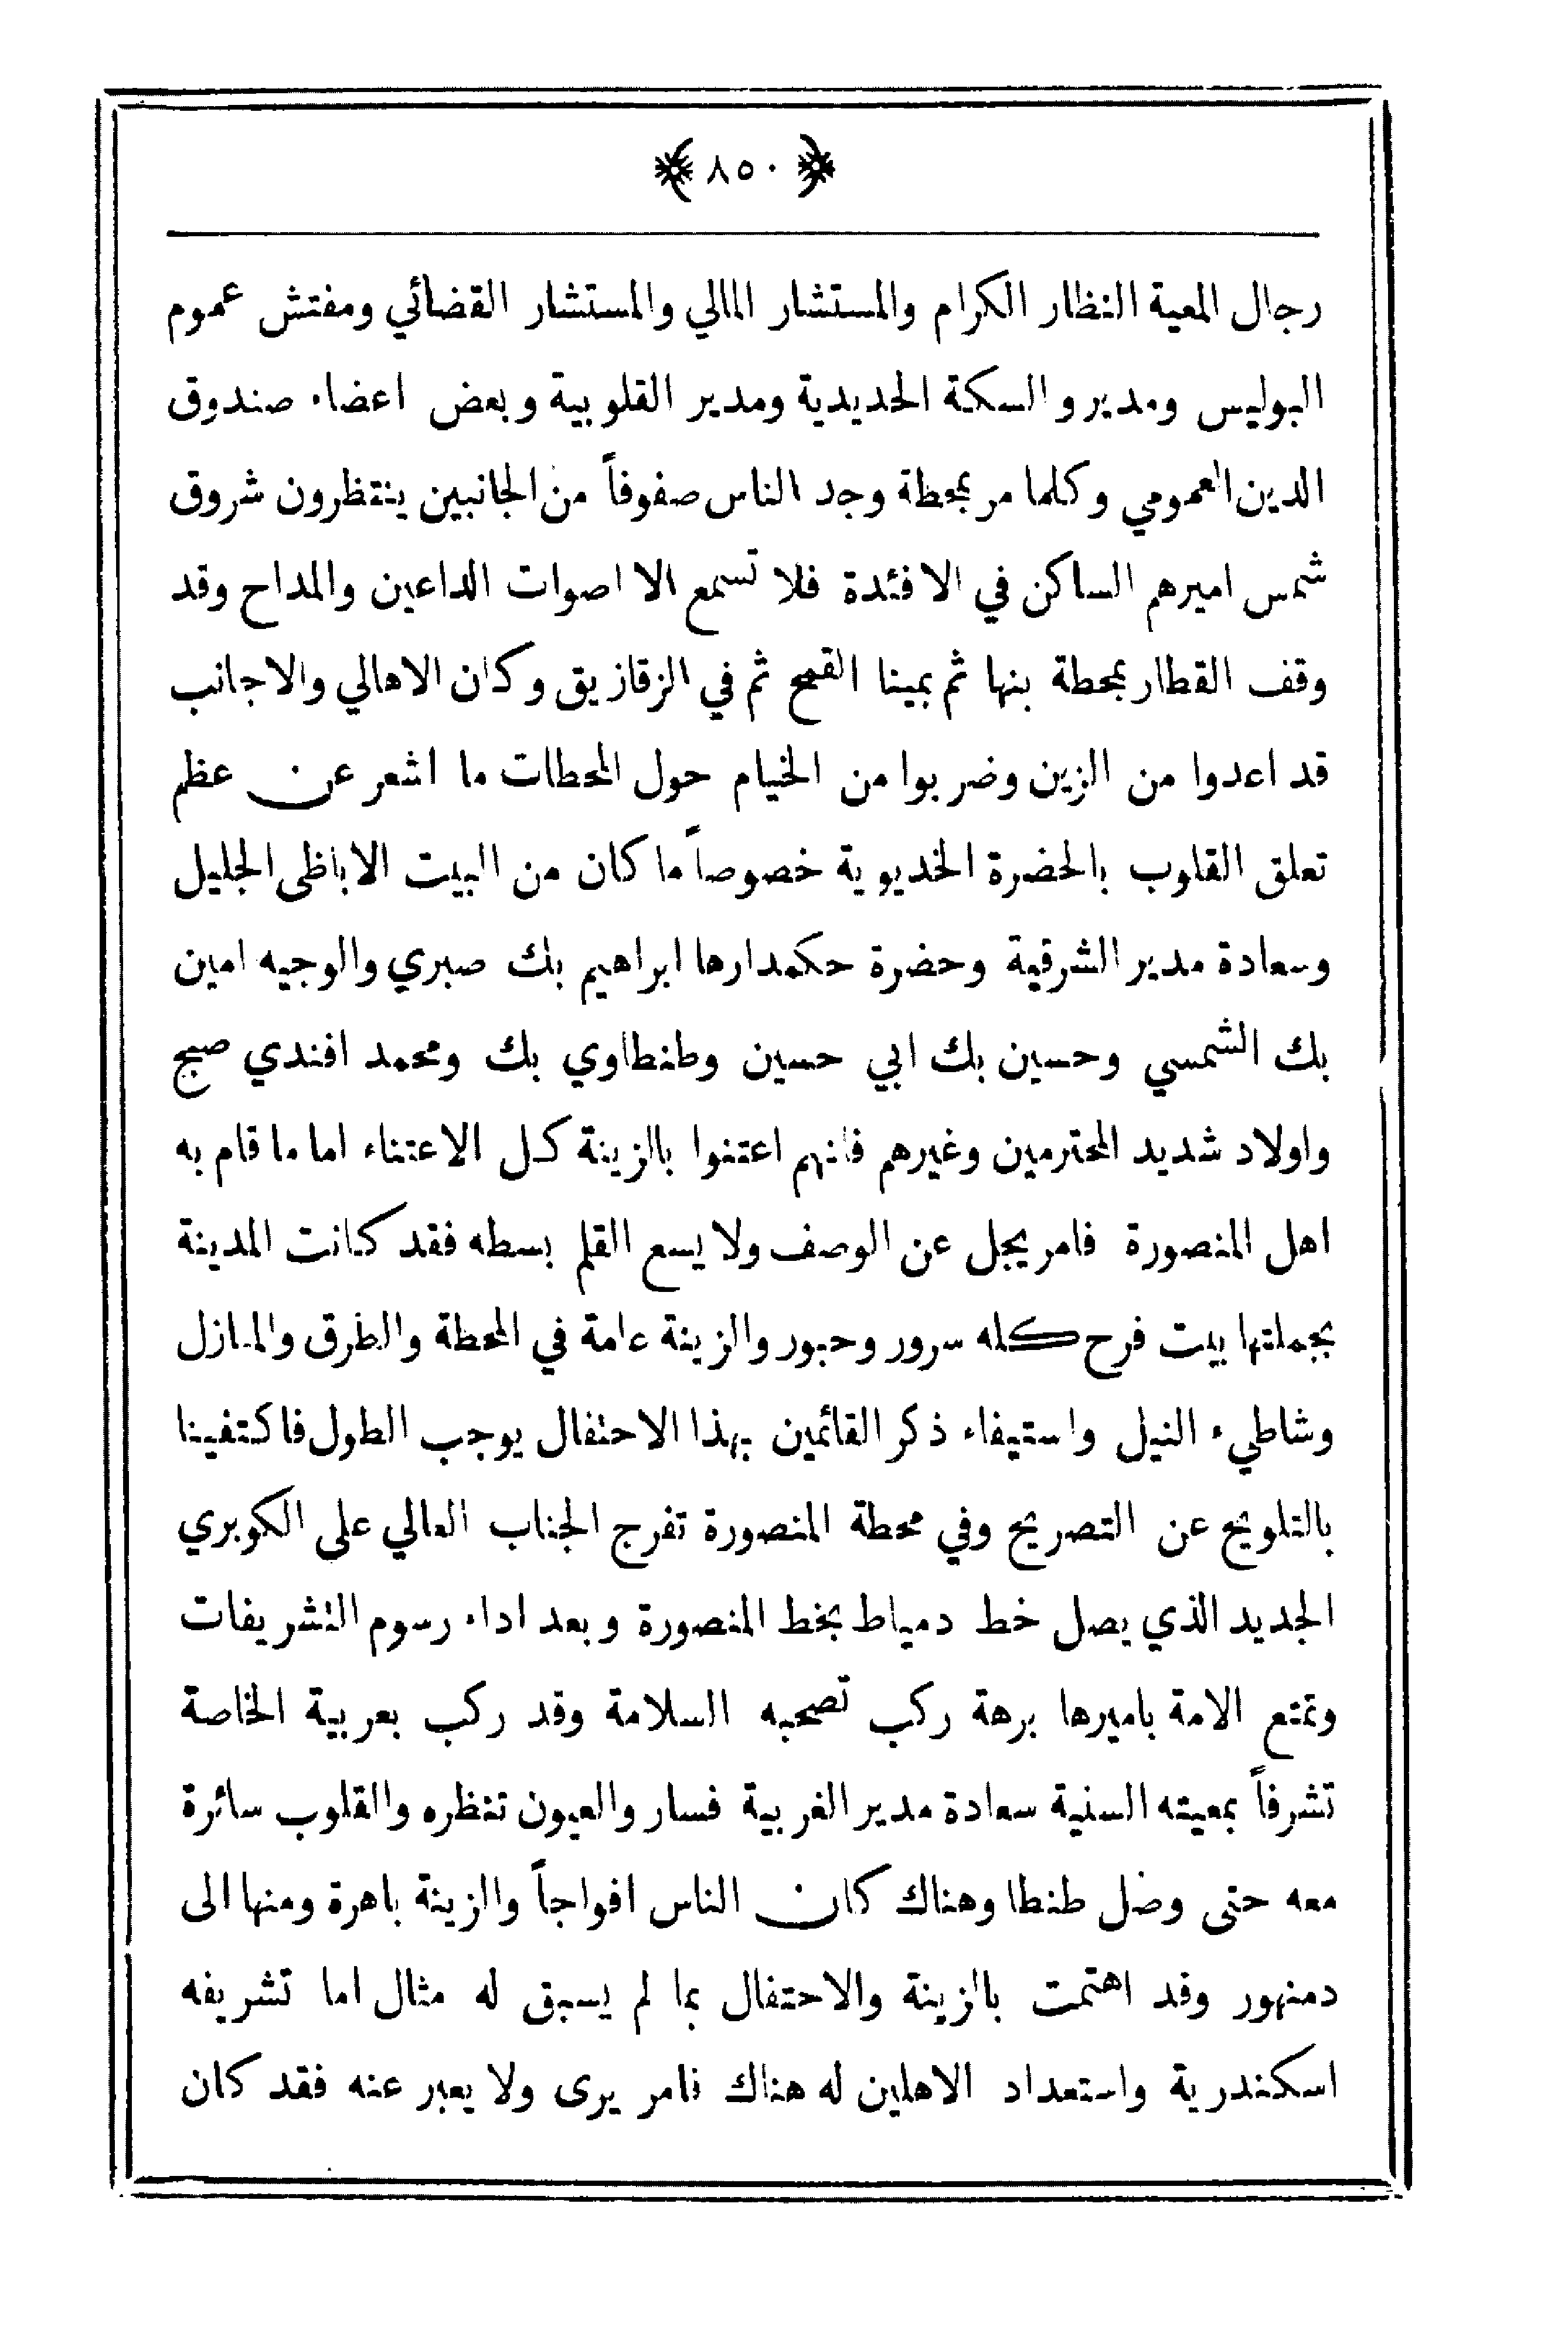 ﴿ ٨٥٠ ﴾
رجال المعية النظار الكرام والمستشار المالي والمستشار القضائي ومفتش عموم
البوليس ومديرو السكة الحديدية ومدير القلوبية وبعض اعضاء صندوق
الدين العمومي وكلما مر بمحطة وجد الناس صفوفاً من الجانبين ينتظرون شروق
شمس اميرهم الساكن في الافئدة فلا تسمع الا اصوات الداعين والمداح وقد
وقف القطار بمحطة بنها ثم بمينا القمح ثم في الزقازيق وكان الاهالي والاجانب
قد اعدوا من الزين وضربوا من الخيام حول المحطات ما اشعر عن عظم
تعلق القلوب بالحضرة الخديوية خصوصاً ما كان من البيت الاباظى الجليل
وسعادة مدير الشرقية وحضرة حكمدارها ابراهيم بك صبري والوجيه امين
بك الشمسي وحسين بك ابي حسين وطنطاوي بك ومحمد افندي صبح
واولاد شديد المحترمين وغيرهم فانهم اعتنوا بالزينة كل الاعتناء اما ما قام به
اهل المنصورة فامر يجل عن الوصف ولا يسع القلم بسطه فقد كانت المدينة
بجملتها بيت فرح كله سرور وحبور والزينة عامة في المحطة والطرق والمنازل
وشاطيء النيل واستيفاء ذكر القائمين بهذا الاحتفال يوجب الطول فاكتفينا
بالتلويح عن التصريح وفي محطة المنصورة تفرج الجناب العالي على الكوبري
الجديد الذي يصل خط دمياط بخط المنصورة وبعد اداء رسوم التشريفات
وتمتع الامة باميرها برهة ركب تصحبه السلامة وقد ركب بعربية الخاصة
تشرفاً بمعيته السنية سعادة مدير الغربية فسار والعيون تنظره والقلوب سائرة
معه حتى وصل طنطا وهناك كان الناس افواجاً والزينة باهرة ومنها الى
دمنهور وقد اهتمت بالزينة والاحتفال بما لم يسبق له مثال اما تشريفه
اسكندرية واستعداد الاهلين له هناك فامر يرى ولا يعبر عنه فقد كان